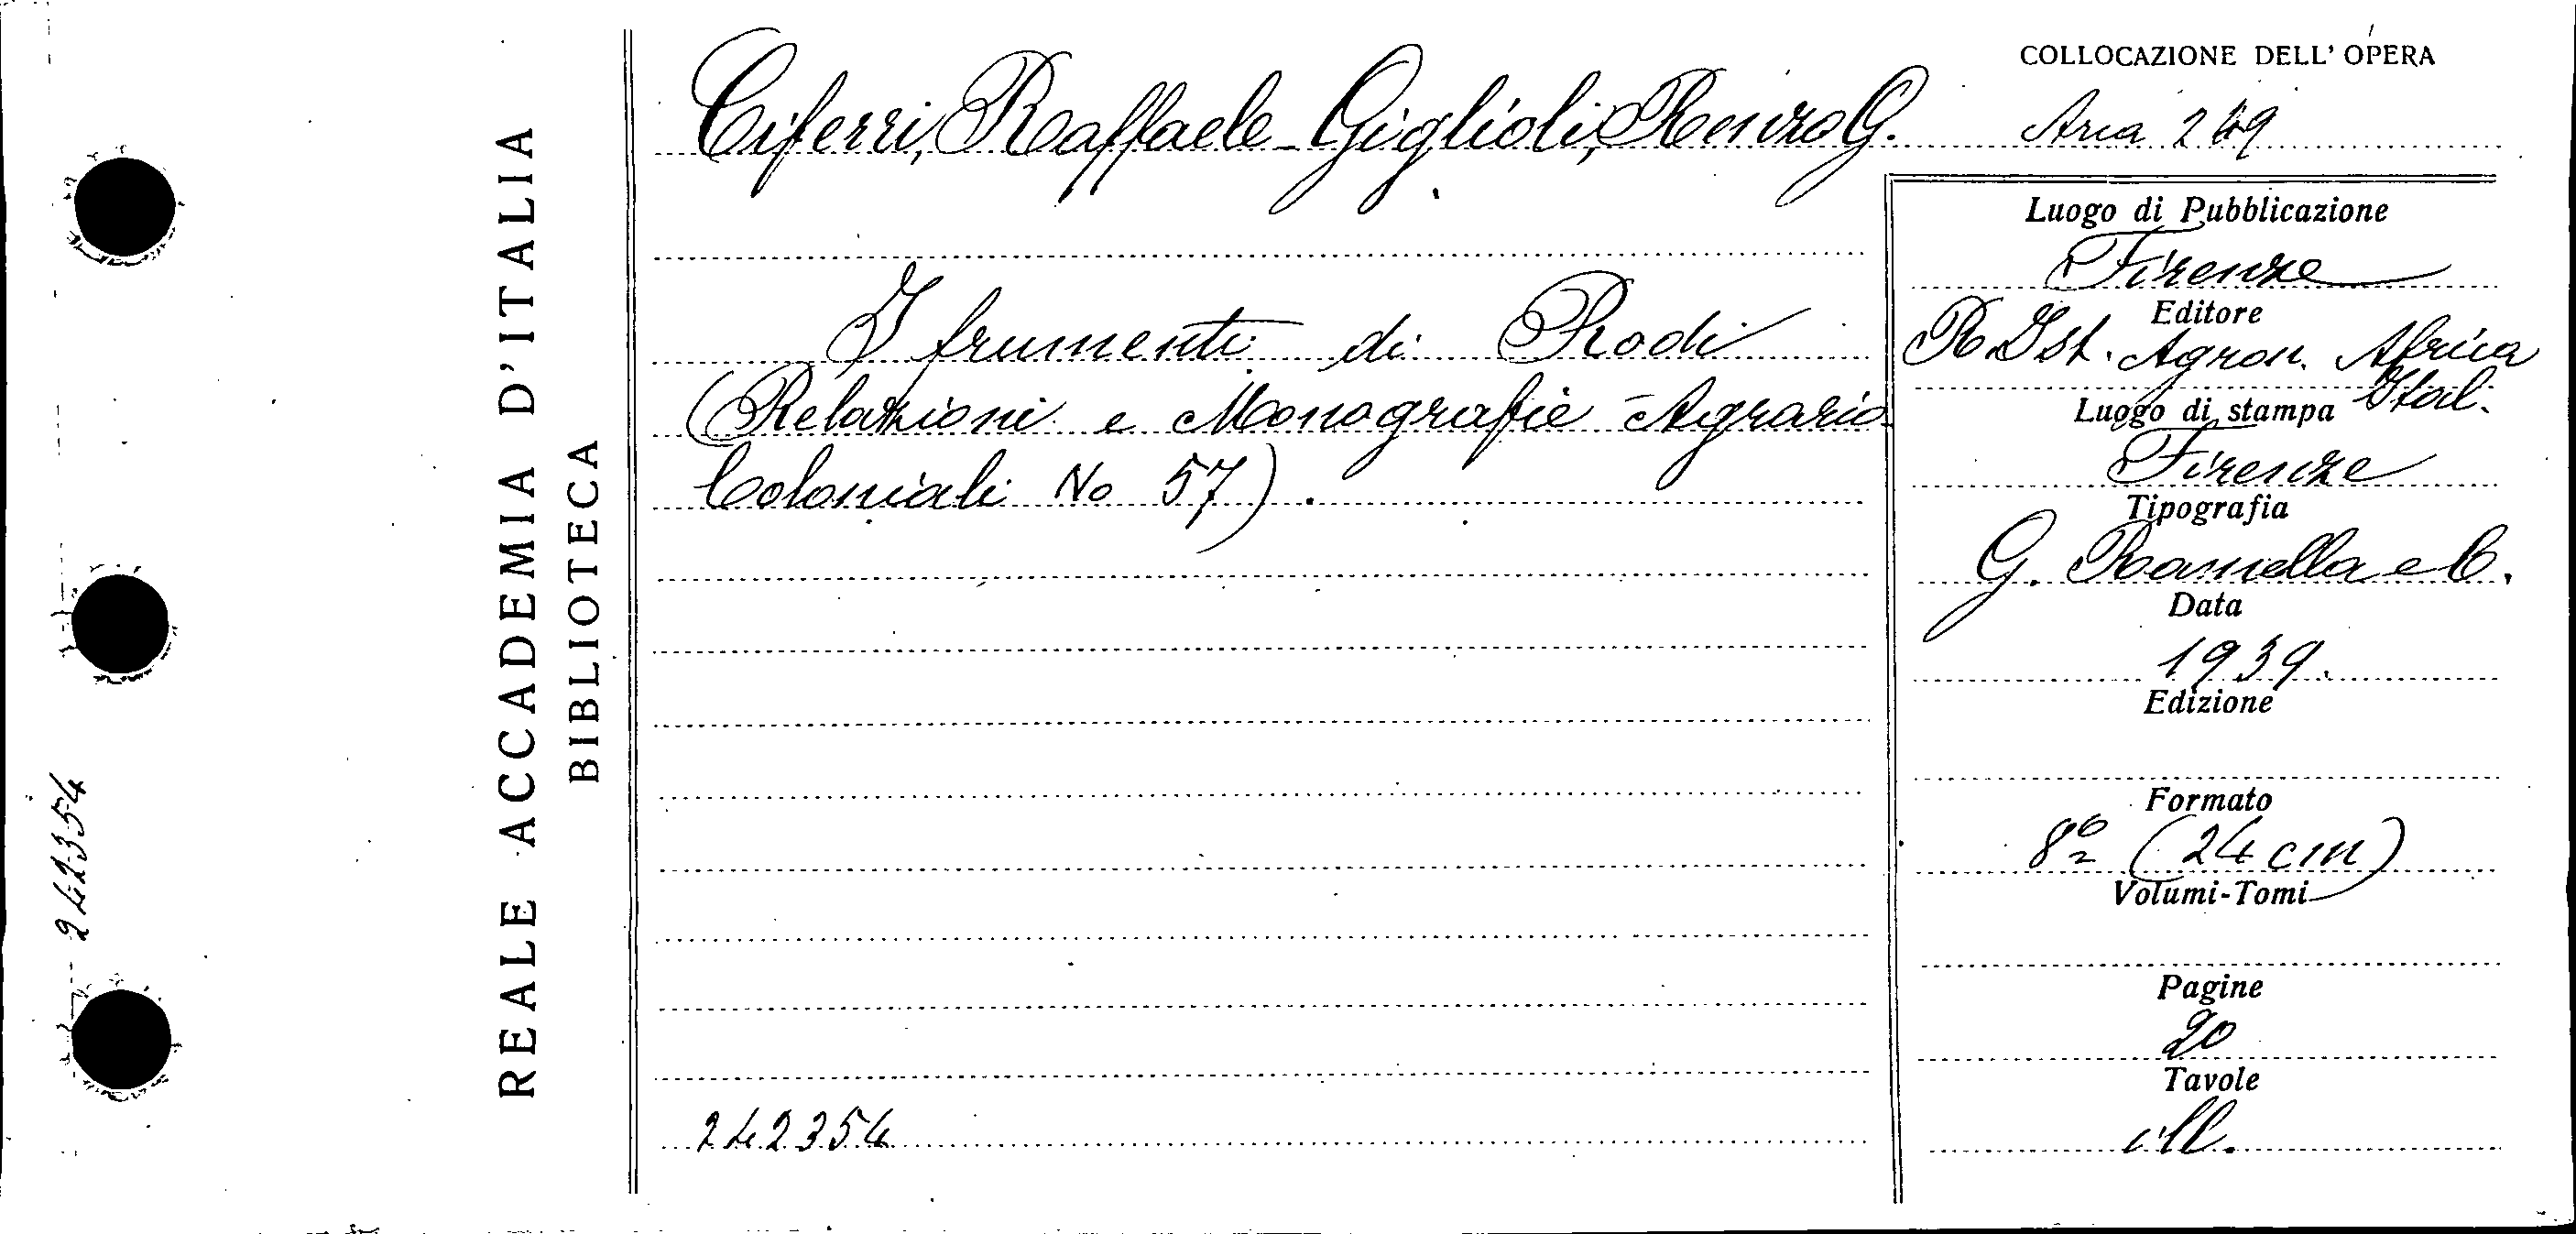 242354
REALE ACCADEMIA D'ITALIA
BIBLIOTECA
Ciferri, Raffaele - Giglioli, Renzo G.
I frumenti di Rodi
(Relazioni e Monografie Agrario
Coloniali No 57).
242354
COLLOCAZIONE DELL' OPERA
249
Luogo di Pubblicazione
Firenze
Editore
R. Ist. Agron. Africa
Ital.
Luogo di stampa
Firenze
Tipografia
G. Ramella e C.
Data
1939.
Edizione
Formato
8º (24 cm)
Volumi-Tomi
Pagine
20
Tavole
ill.